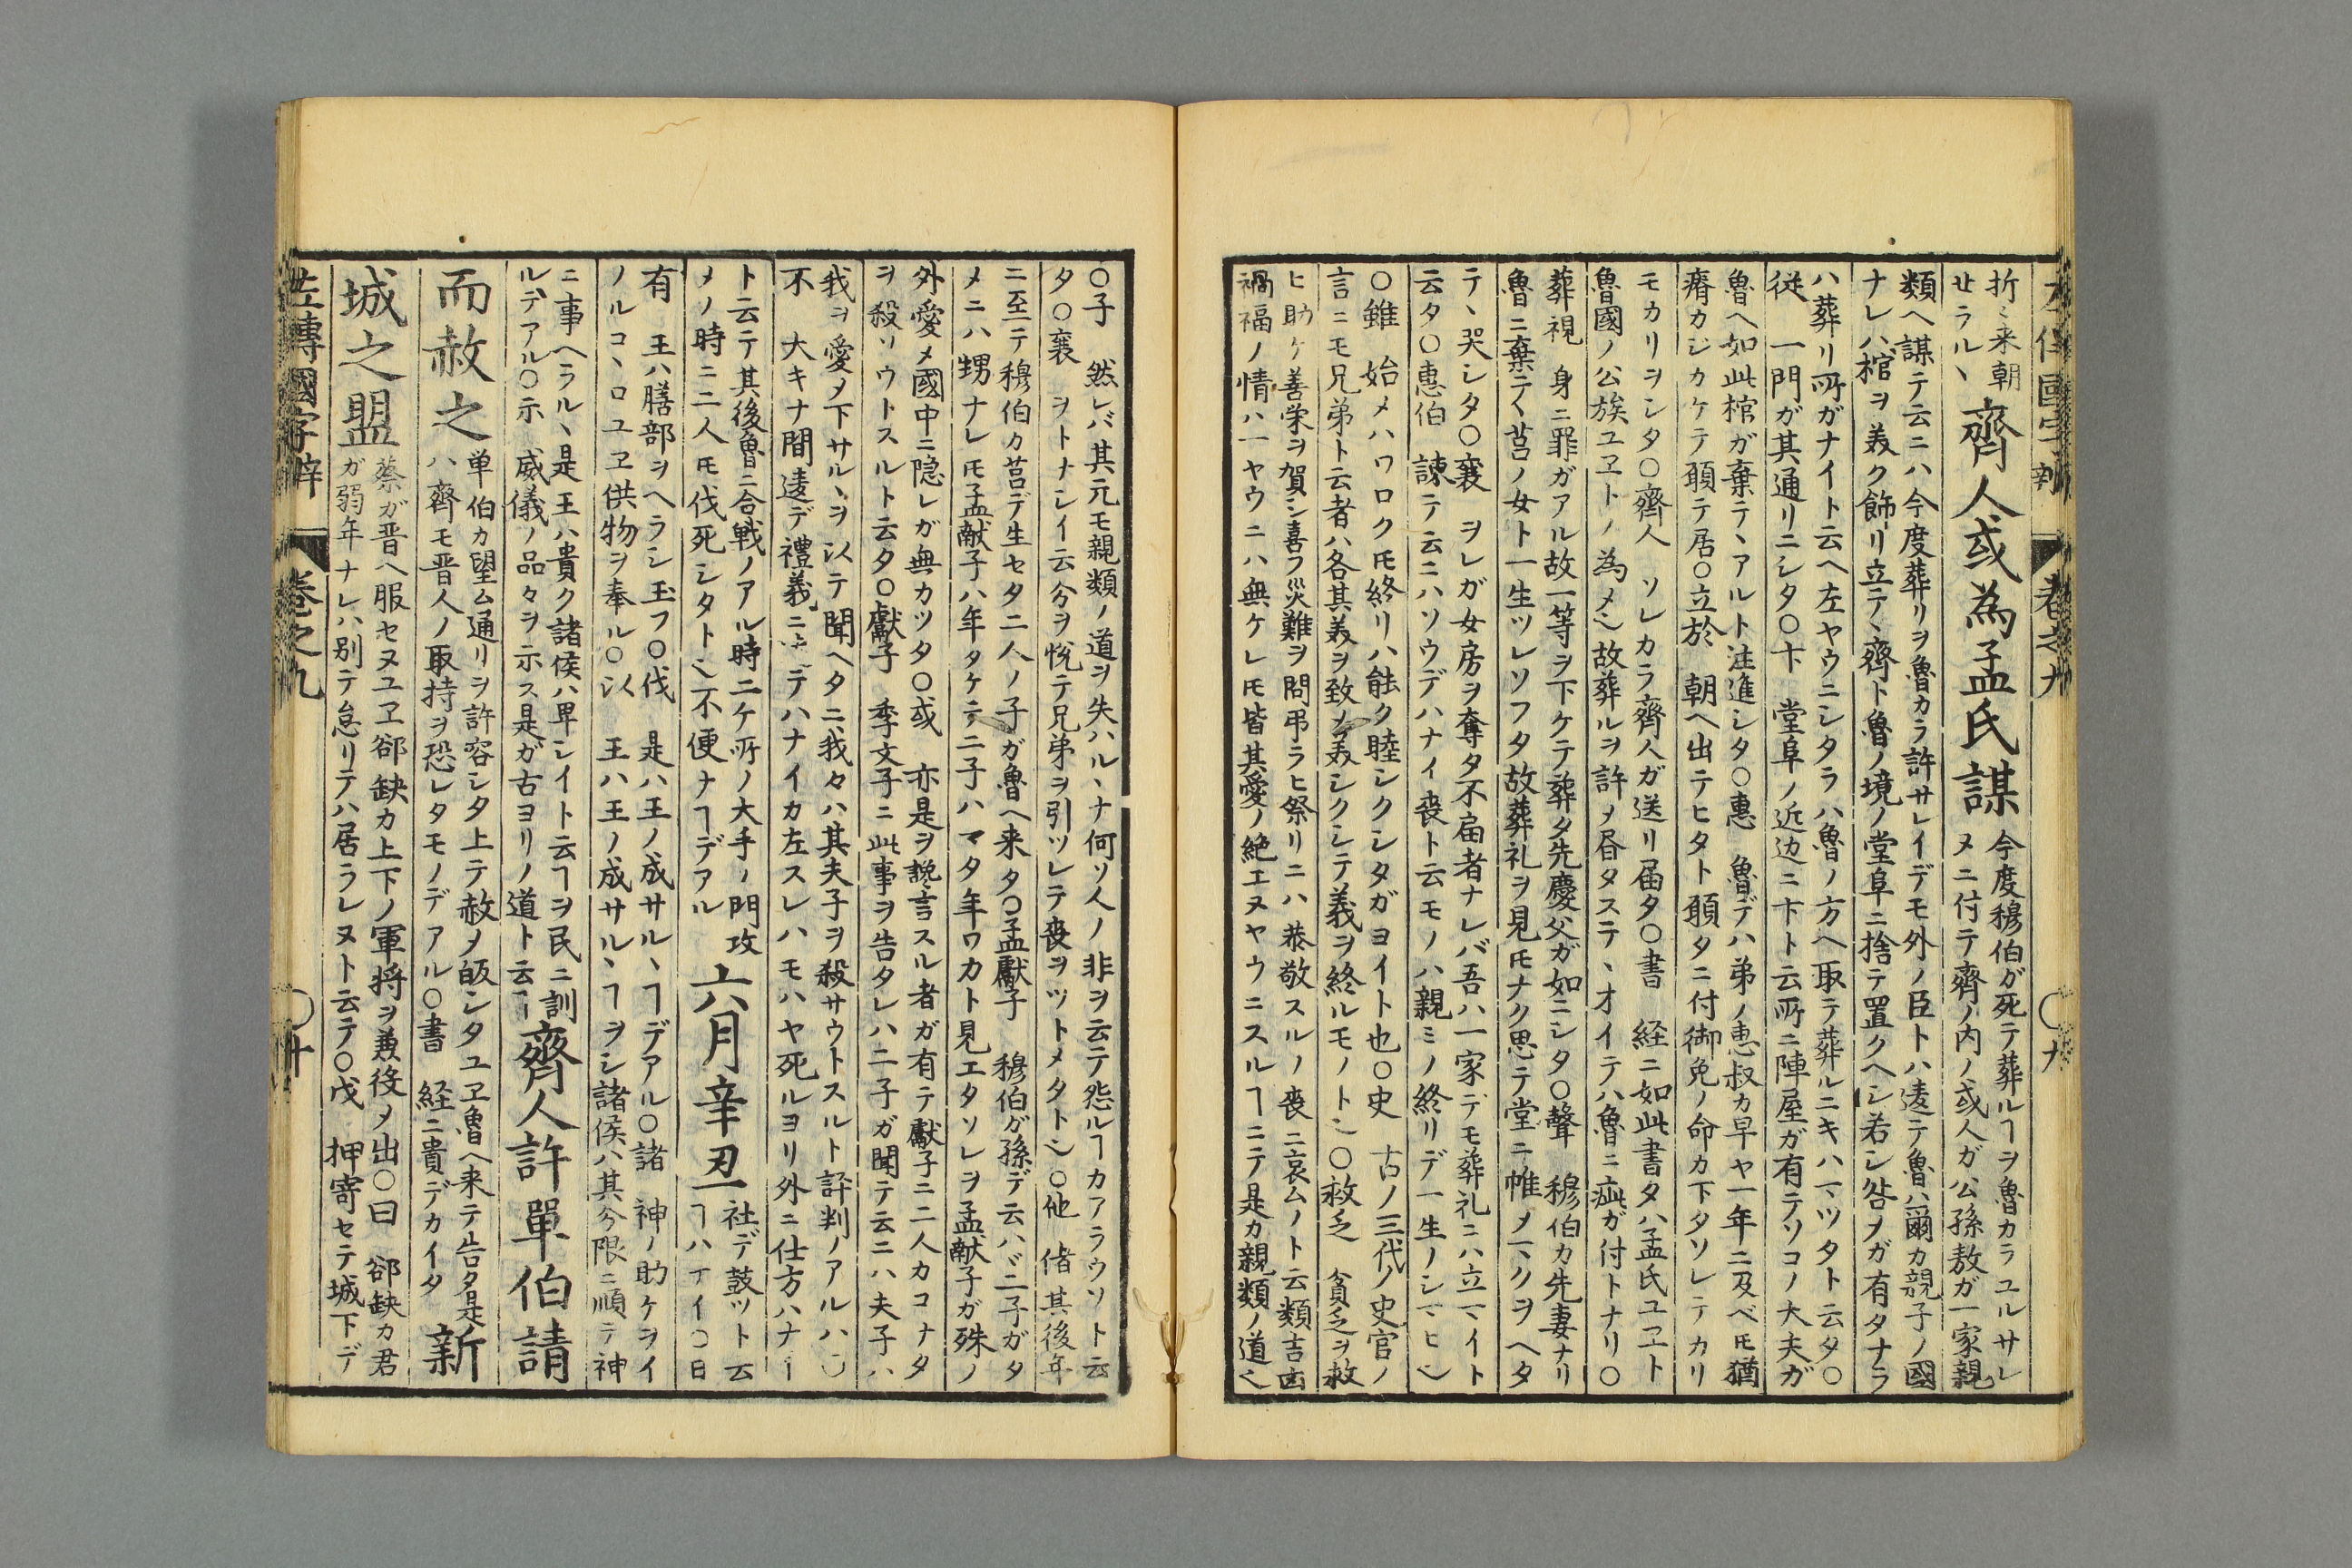 左傳國字辯 巻之九 〇九
折〻来朝
せラル丶
齊人或為孟氏謀
今度穆伯ガ死テ葬ルヿヲ魯カラユルサレ
ヌニ付テ齊ノ内ノ或人ガ公孫敖ガ一家親
類ヘ謀テ云ニハ今度葬リヲ魯カラ許サレイデモ外ノ臣トハ逺テ魯ハ爾カ親子ノ國
ナレハ棺ヲ美ク飾リ立テ丶齊ト魯ノ境ノ堂阜ニ捨テ置クヘシ若シ咎メガ有タナラ
ハ葬リ所ガナイト云ヘ左ヤウニシタラハ魯ノ方ヘ取テ葬ルニキハマツタト云タ〇
従 一門ガ其通リニシタ〇卞 堂阜ノ近辺ニ卞ト云所ニ陣屋ガ有テソコノ大夫ガ
魯ヘ如此棺ガ棄テ丶アルト注進シタ〇惠 魯デハ弟ノ恵叔カ早ヤ一年ニ及ベ𪜈猶
瘠カジカケテ頋テ居〇立於 朝ヘ出テヒタト頋タニ付御免ノ命カ下タソレテカリ
モカリヲシタ〇齊人 ソレカラ齊人ガ送リ届タ〇書 経ニ如此書タハ孟氏ユヱト
魯國ノ公族ユヱトノ為メ也故葬ルヲ許メ昏タステ丶オイテハ魯ニ疵ガ付トナリ〇
葬視 身ニ罪ガアル故一等ヲ下ケテ葬タ先慶父ガ如ニシタ〇聲 穆伯カ先妻ナリ
魯ニ棄テ丶莒ノ女ト一生ツレソフタ故葬礼ヲ見𪜈ナク思テ堂ニ帷メマクヲヘタ
テ丶哭シタ〇襄 ヲレガ女房ヲ奪タ不届者ナレバ吾ハ一家デモ葬礼ニハ立マイト
云タ〇惠伯 諫テ云ニハソウデハナイ喪ト云モノハ親ミノ終リデ一生ノシマヒ也
〇雖 始メハワロク𪜈終リハ能ク睦シクシタガヨイト也〇史 古ノ三代ノ史官ノ
言ニモ兄弟ト云者ハ各其美ヲ致メ美シクシテ義ヲ終ルモノト也〇救乏 貧乏ヲ救
ヒ助ケ善栄ヲ賀シ喜フ災難ヲ問弔ラヒ祭リニハ恭敬スルノ喪ニ哀ムノト云類吉凶
禍福ノ情ハ一ヤウニハ無ケレ𪜈皆其愛ノ絶エヌヤウニスルヿニテ是カ親類ノ道也
〇子 然レバ其元モ親類ノ道ヲ失ハル丶ナ何ソ人ノ非ヲ云テ怨ルヿカアラウソト云
タ〇襄 ヲトナシイ云分ヲ悦テ兄弟ヲ引ツレテ喪ヲツトメタト也〇他 偖其後年
ニ至テ穆伯カ莒デ生セタ二人ノ子ガ魯ヘ来タ〇孟獻子 穆伯ガ孫デ云ハバ二子ガタ
メニハ甥ナレ𪜈孟献子ハ年タケテ二子ハマタ年ワカト見エタソレヲ孟献子ガ殊ノ
外愛メ國中ニ隠レガ無カツタ〇或 亦是ヲ讒言スル者ガ有テ獻子ニ二人カコナタ
ヲ殺ソウトスルト云タ〇獻子 季文子ニ此事ヲ告タレハ二子ガ聞テ云ニハ夫子ハ
我ヲ愛メ下サル丶ヲ以テ聞ヘタニ我々ハ其夫子ヲ殺サウトスルト評判ノアルハ〇
不 大キナ間逺デ禮義ニ デハナイカ左スレハモハヤ死ルヨリ外ニ仕方ハナイ
ト云テ其後魯ニ合戦ノアル時二ケ所ノ大手ノ門攻
メノ時ニ二人𪜈伐死シタト也不便ナヿデアル
六月辛丑
社デ鼓ツト云
ヿハナイ〇日
有 王ハ膳部ヲヘラシ玉フ〇伐 是ハ王ノ成サル丶ヿデアル〇諸 神ノ助ケヲイ
ノルコ丶ロユヱ供物ヲ奉ル〇以 王ハ王ノ成サル丶ヿヲシ諸侯ハ其分限ニ順テ神
ニ事ヘラル丶是王ハ貴ク諸侯ハ卑シイト云ヿヲ民ニ訓
ルデアル〇示 威儀ノ品々ヲ示ス是ガ古ヨリノ道ト云ヿ
齊人許單伯請
而赦之
単伯カ望ム通リヲ許容シタ上テ赦メ皈シタユヱ魯ヘ来テ告タ是
ハ齊モ晋人ノ取持ヲ恐レタモノデアル〇書 経ニ貴デカイタ
新
城之盟
蔡ガ晋ヘ服セヌユヱ郤缺カ上下ノ軍将ヲ兼役メ出〇曰 郤缺カ君
ガ弱年ナレハ別テ怠リテハ居ラレヌト云テ〇戊 押寄セテ城下デ
左傳國字辯 巻之九 〇十